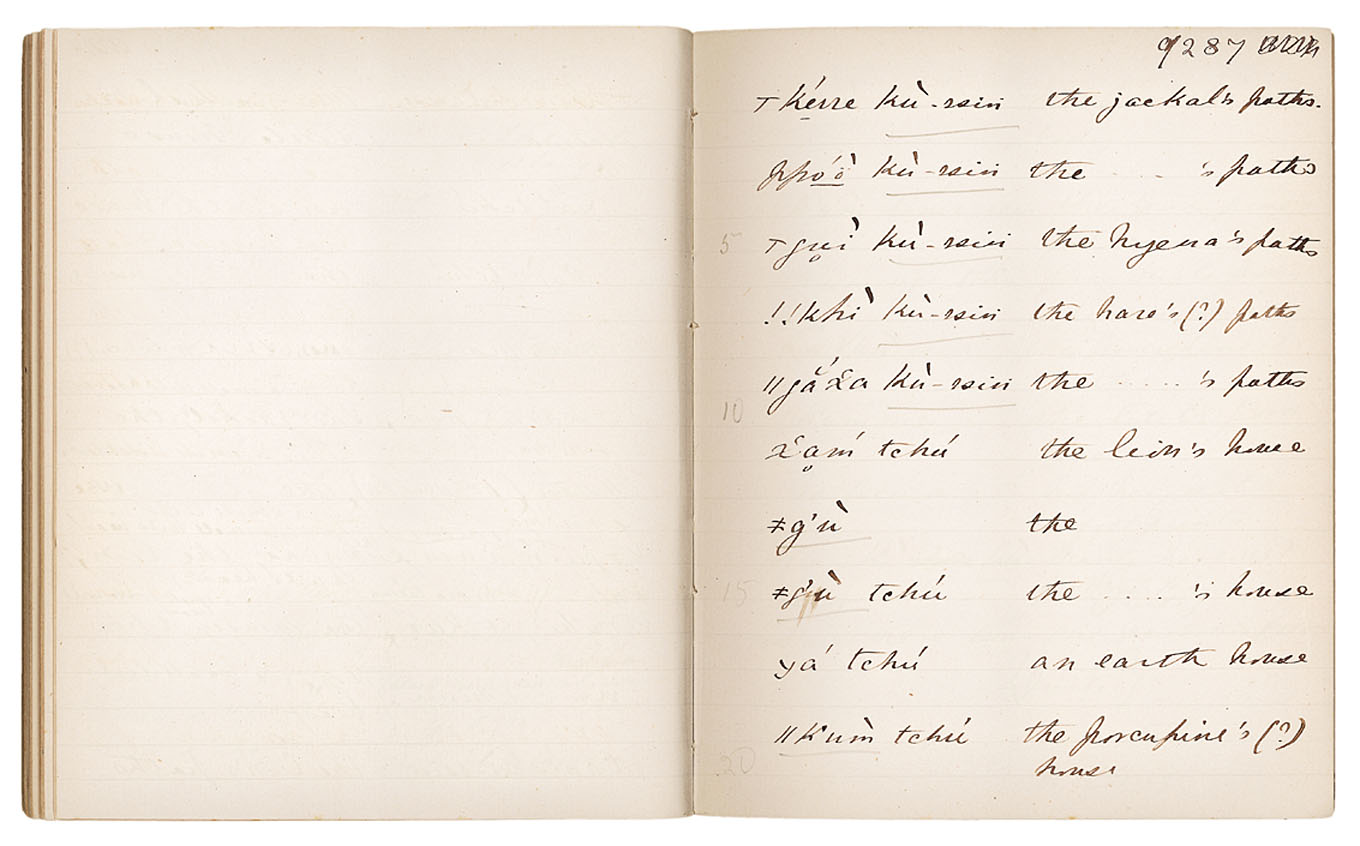 9287
⊤ ḱe̱rre kù-rsin the jackal's paths.
kù-rsin the .... 's paths
5 ⊤ gu̥ì kù-rsin the hyena's paths
!!khì kù-rsin the hare's (?) paths
kù-rsin the ..... 's paths
10
tchú the lion's house
≠g'ù the
15 ≠g'ù tchú the .... 's house
yá tchú an earth house
ǁk'ùm tchú the porcupine's (?)
20 house